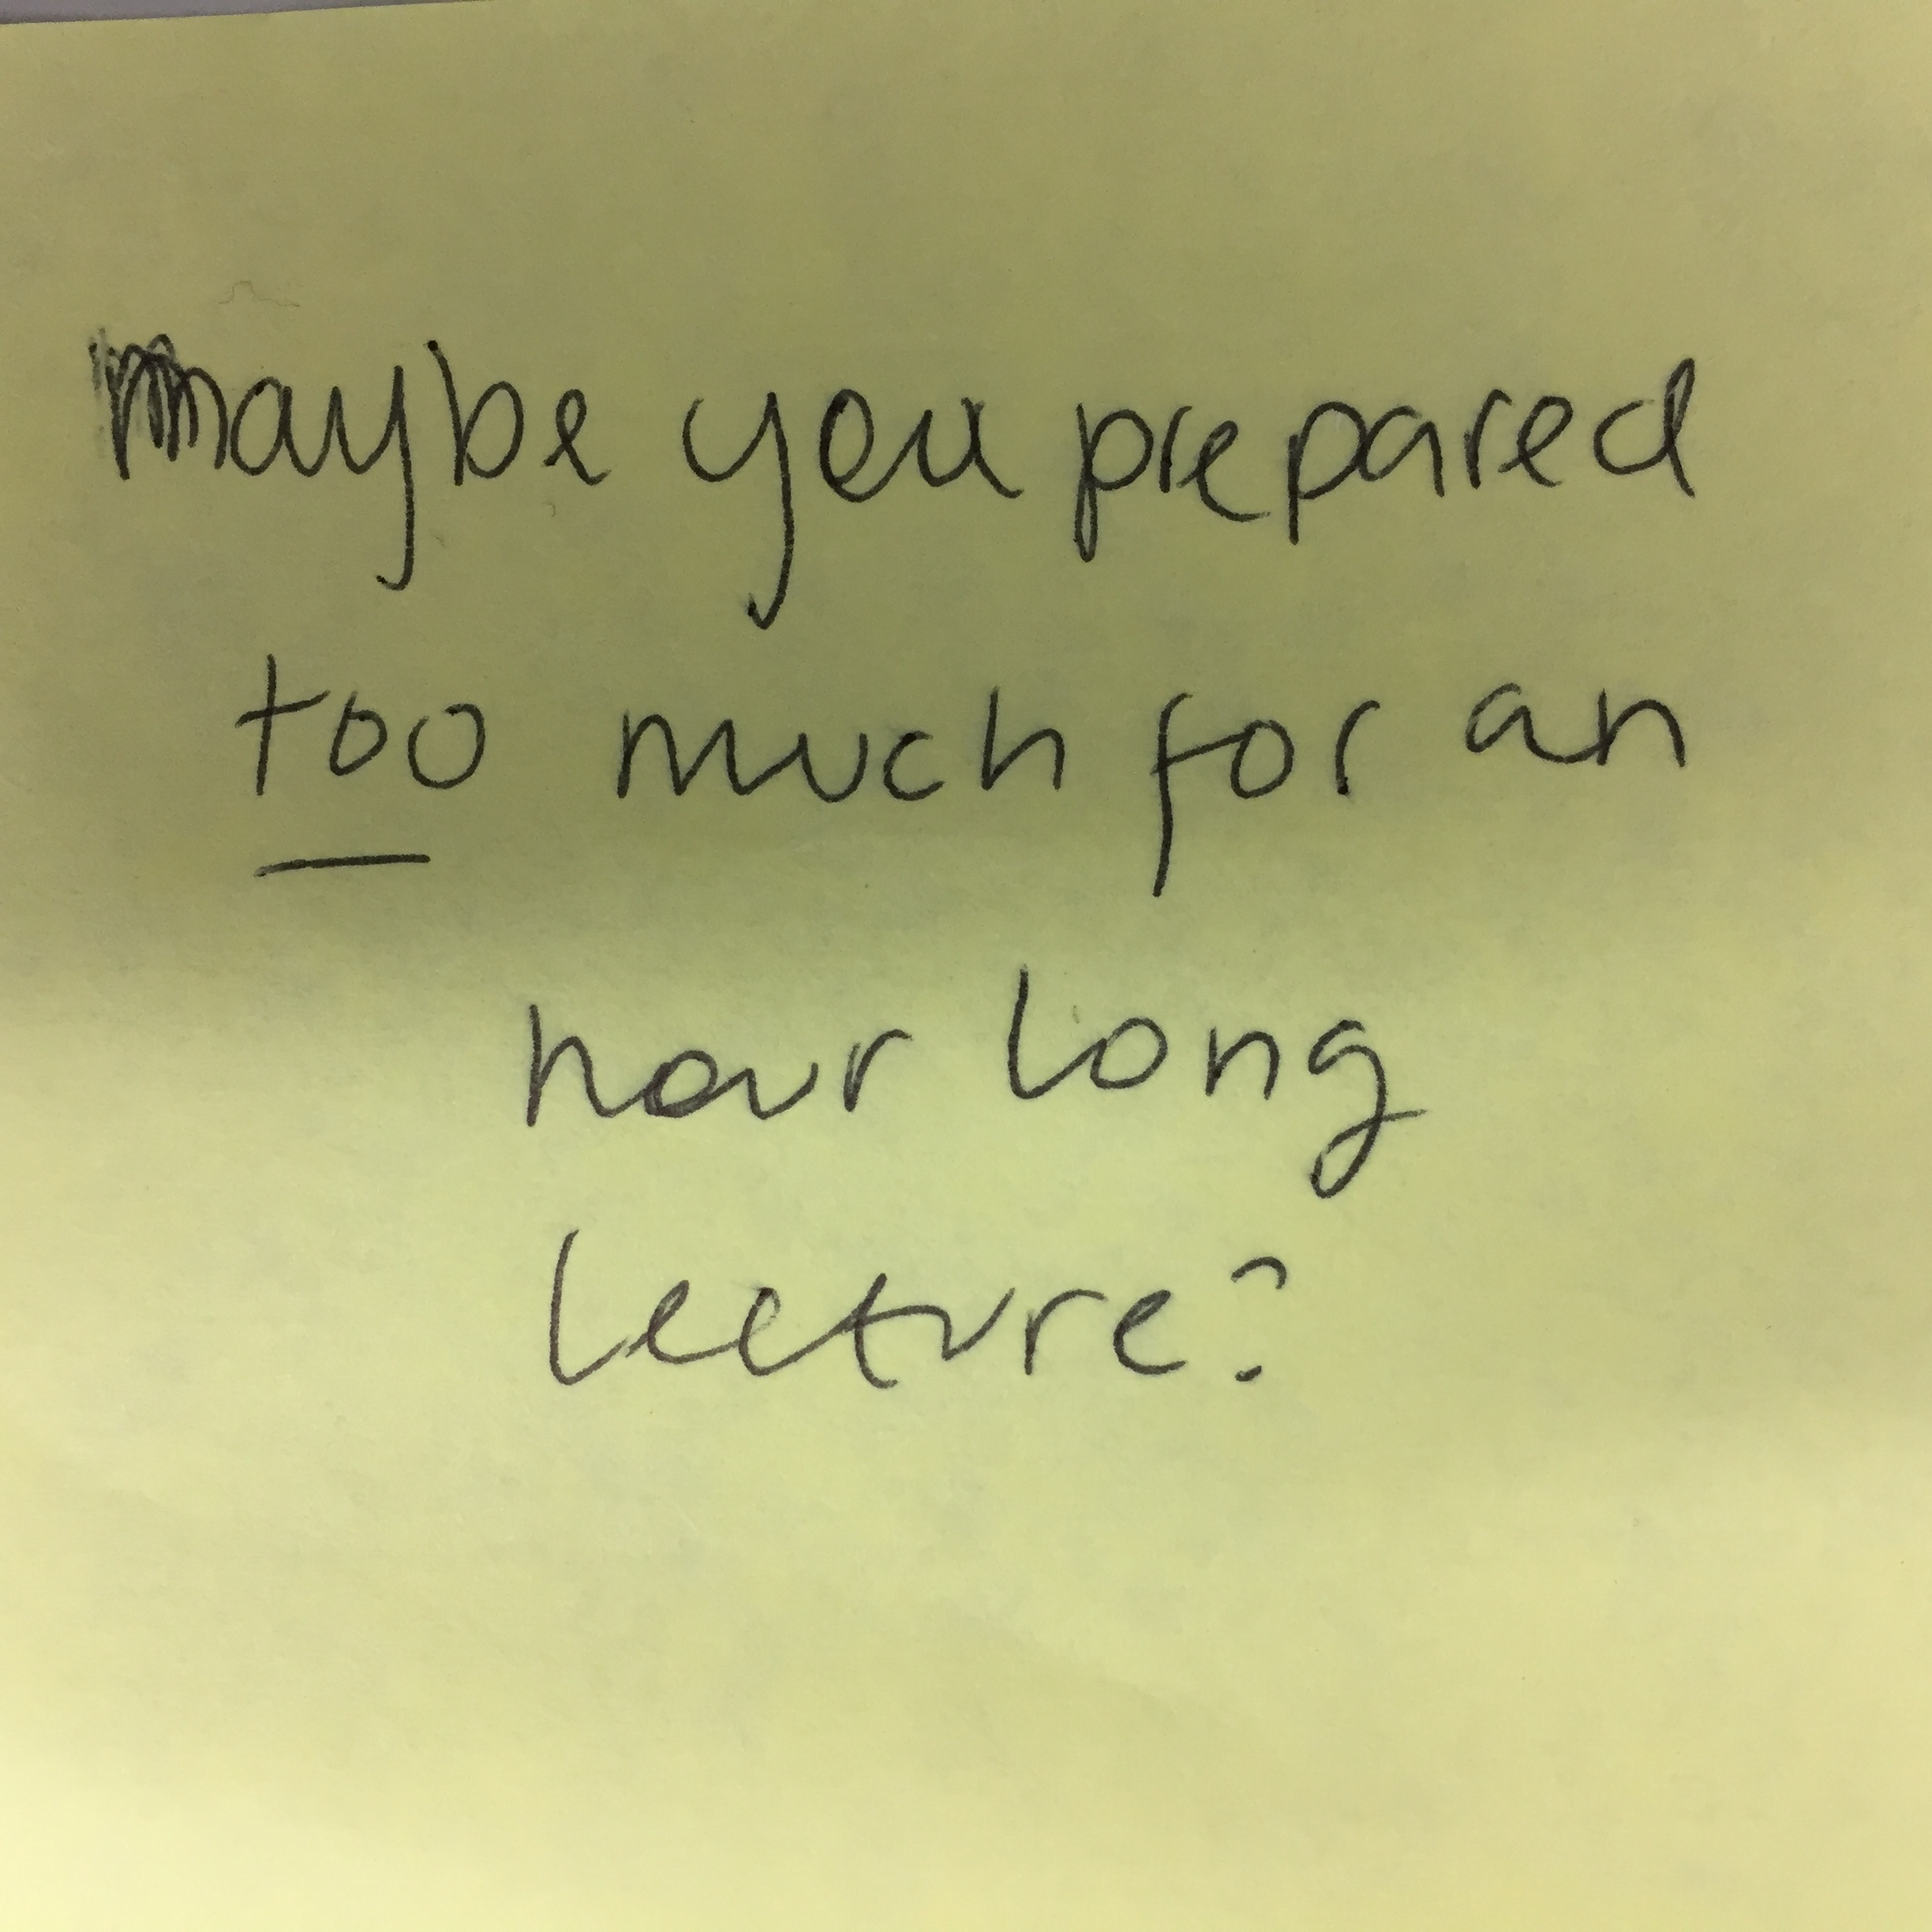 maybe you prepared
too much for an
hour long
lecture?